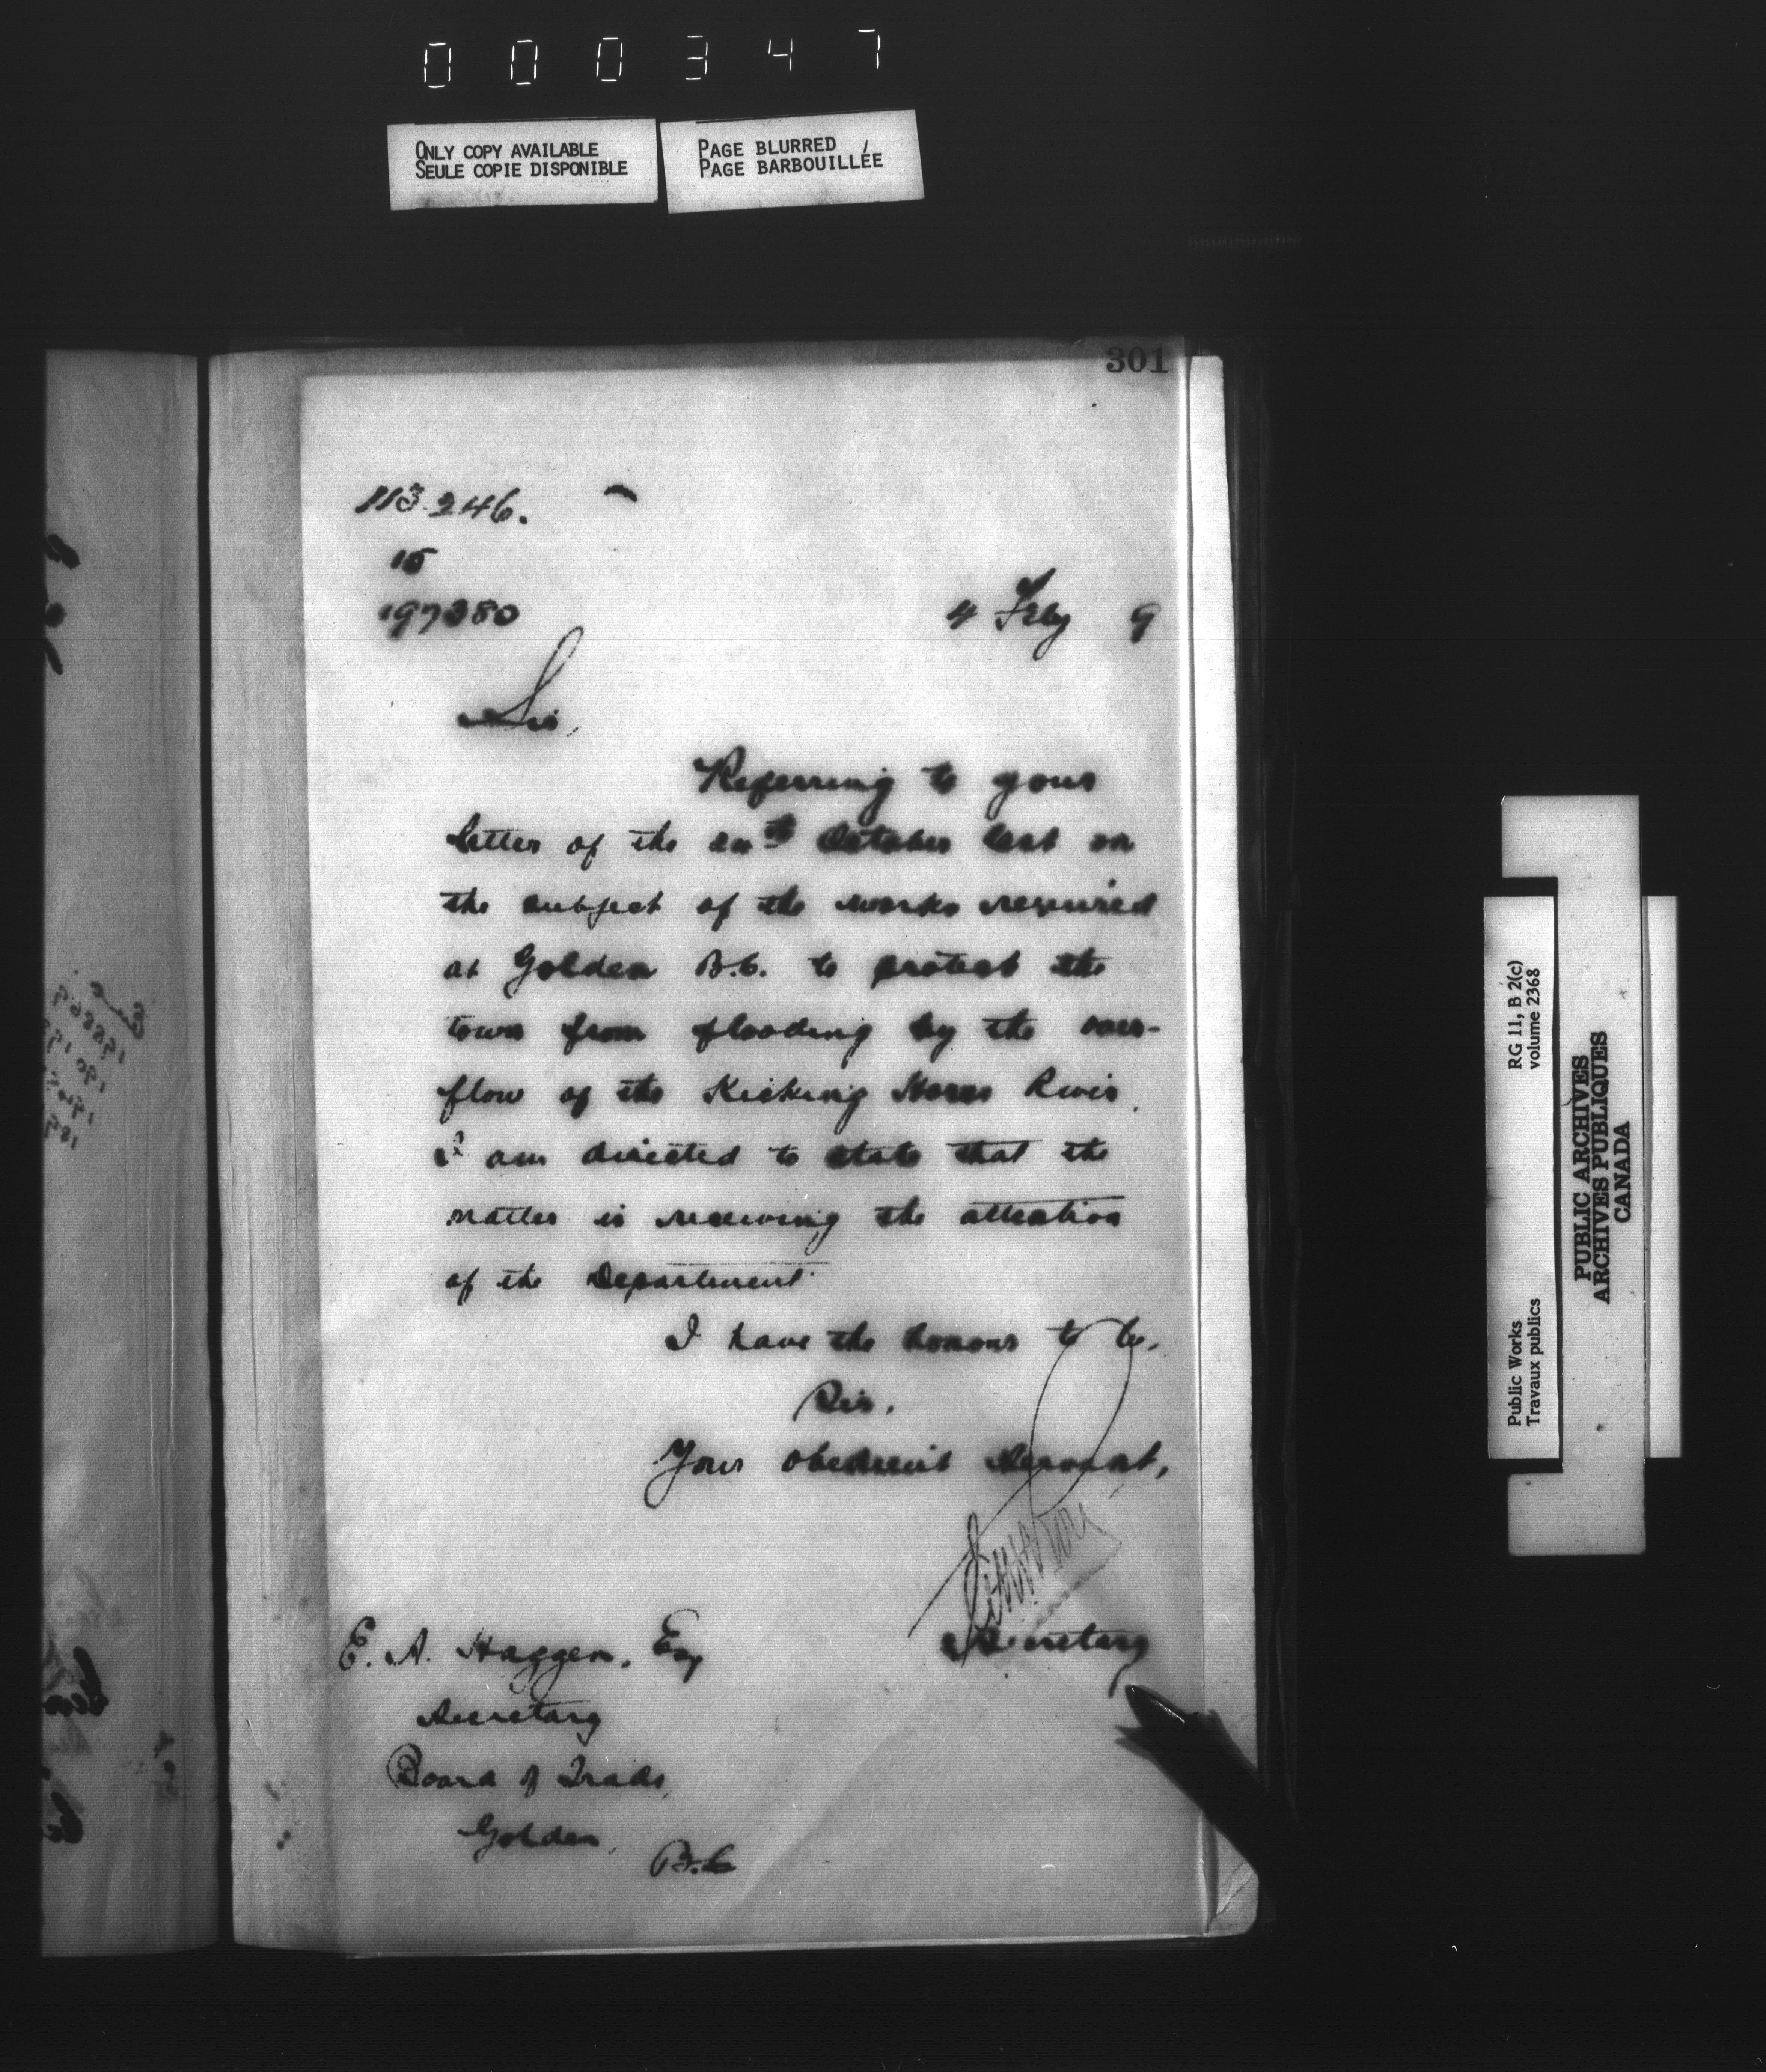 000347
ONLY COPY AVAILABLE
SEULE COPIE DISPONIBLE
PAGE BLURRED
PAGE BARBOUILLÉE
301
113.246.
15
4 Feby 9
Sir,
Referring to your
letter of the October last on
the subject of the works required
at Golden B.C. to protect the
town from flooding by the over-
flow of the Kicking Horse River.
I am directed to state that the
matter is receiving the attention
of the Department.
I have the honour to be,
Sir.
Your obedient servant,
Secretary
E. A. Haggen, Esq
Secretary
Board of Trade,
Golden,
B.C
Public Works
Travaux publics
RG 11, B 2(c)
volume 2368
PUBLIC ARCHIVES
ARCHIVES PUBLIQUES
CANADA